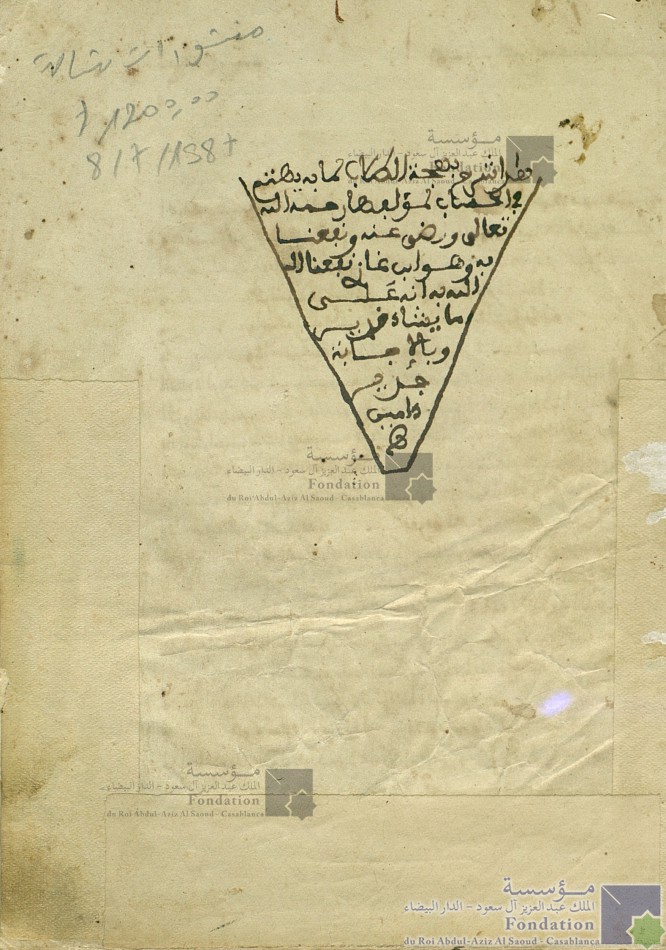 منشورات
1200,00
8/7/1987
هذا شرح بهجة الطلاب لما به يعتنى
في الحساب لمؤلفها رحمه الله
تعالى ورضي عنه ونفعنا
به وهو ابن غاز نفعنا الله
الله به انه على
ما يشاء قدير
وبالإجابة
جدير
ءامين
هـ
مؤسسة
الملك عبد العزيز آل سعود - الدار البيضاء
مؤسسة
الملك عبد العزيز آل سعود - الدار البيضاء
Fondation
du Roi Abdul-Aziz Al Saoud - Casablanca
مؤسسة
الملك عبد العزيز آل سعود - الدار البيضاء
Fondation
du Roi Abdul-Aziz Al Saoud - Casablanca
مؤسسة
الملك عبد العزيز آل سعود - الدار البيضاء
Fondation
du Roi Abdul-Aziz Al Saoud - Casablanca